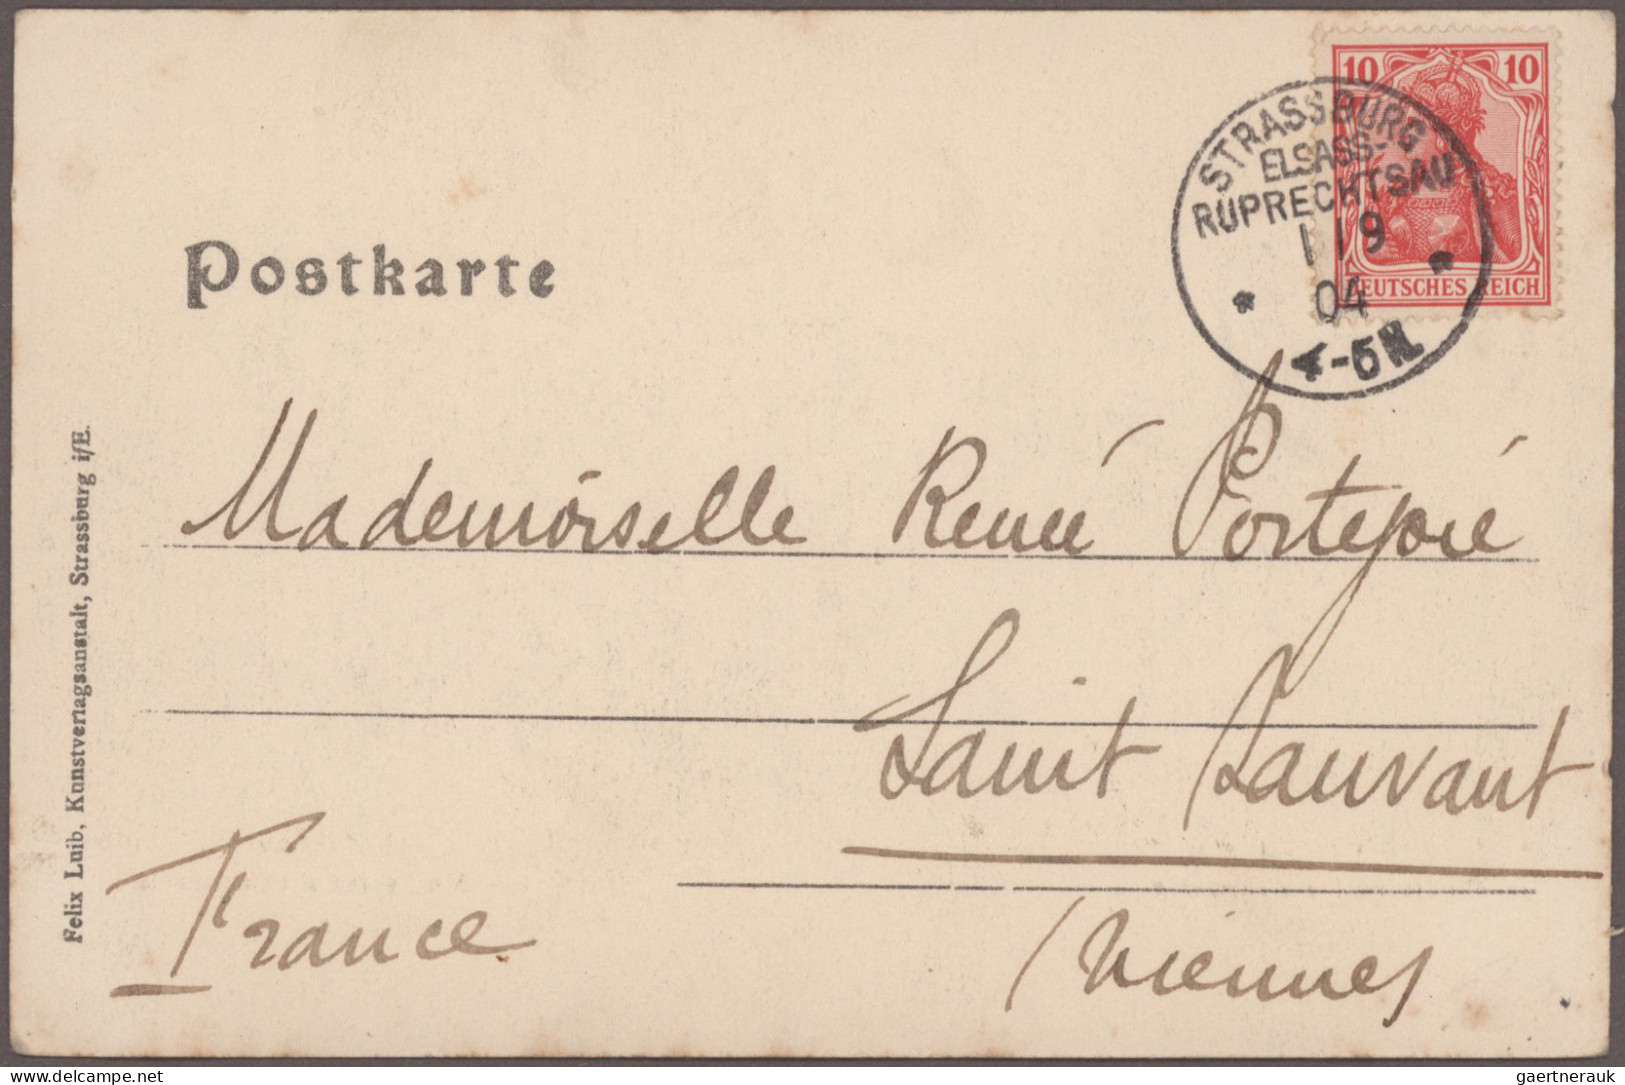 10 10
DEUTSCHES REICH
STRASSBURG
ELSASS-
RUPRECHTSAU
1 / 9
04
* *
4-5N.
Postkarte
Felix Luib, Kunstverlagsanstalt, Strassburg i/E.
Mademoiselle Renée Portejoié
Saint Sauvant
France
(Vienne)
gaertnerauk